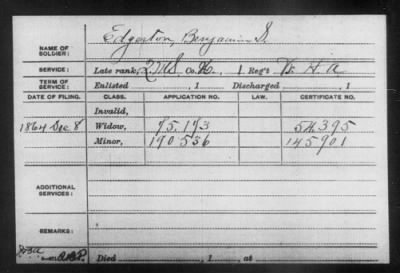 NAME OF SOLDIER: Edgerton, Benjamin S.
SERVICE: Late rank, Co. 1 Reg't Vt. H. A
TERM OF SERVICE: Enlisted , 1 Discharged , 1
DATE OF FILING. CLASS. APPLICATION NO. CERTIFICATE NO.
Invalid,
1864 Dec 8 Widow, 75.193 54.395
Minor, 190.536 145901
ADDITIONAL SERVICES:
REMARKS:
Died , 1 , at